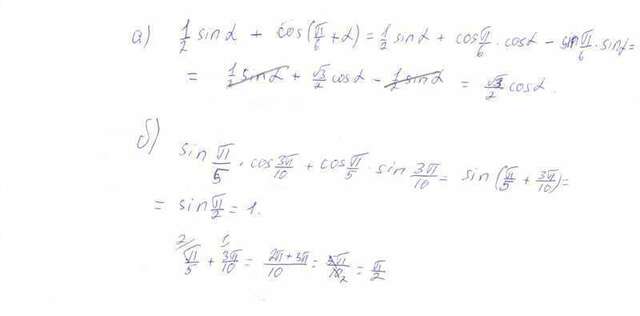 а) 1/2 sin α + cos(π/6 + α) = 1/2 sin α + cos π/6 · cos α − sin π/6 · sin α =
= 1/2 sin α + √3/2 cos α − 1/2 sin α = √3/2 cos α.
б) sin π/5 · cos 3π/10 + cos π/5 · sin 3π/10 = sin(π/5 + 3π/10) =
= sin π/2 = 1.
2/ π/5 + 3π/10 = 2π + 3π/10 = 5π/10 2 = π/2